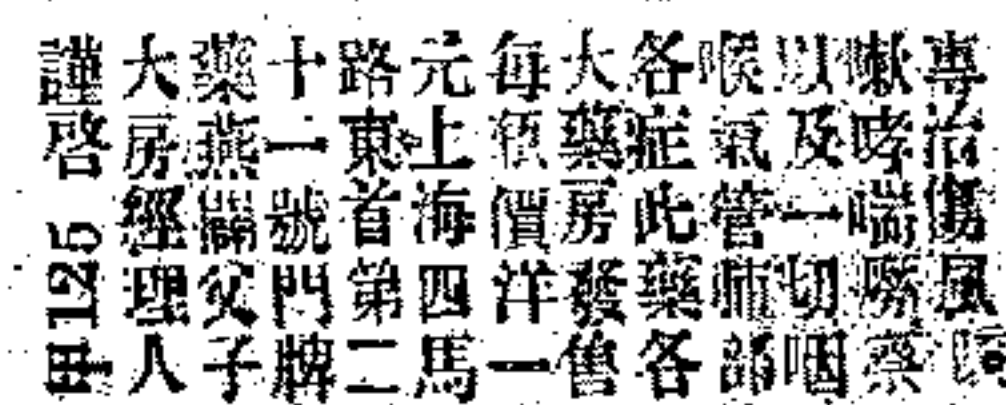 專治傷風
嗽哮喘
以及一切咽
喉氣管肺部
各症此藥各
大藥房發售
每瓶價洋一
元上海四馬
路東首第二
十一號門牌
藥燕醫父子
大房經理人
謹啓 H125